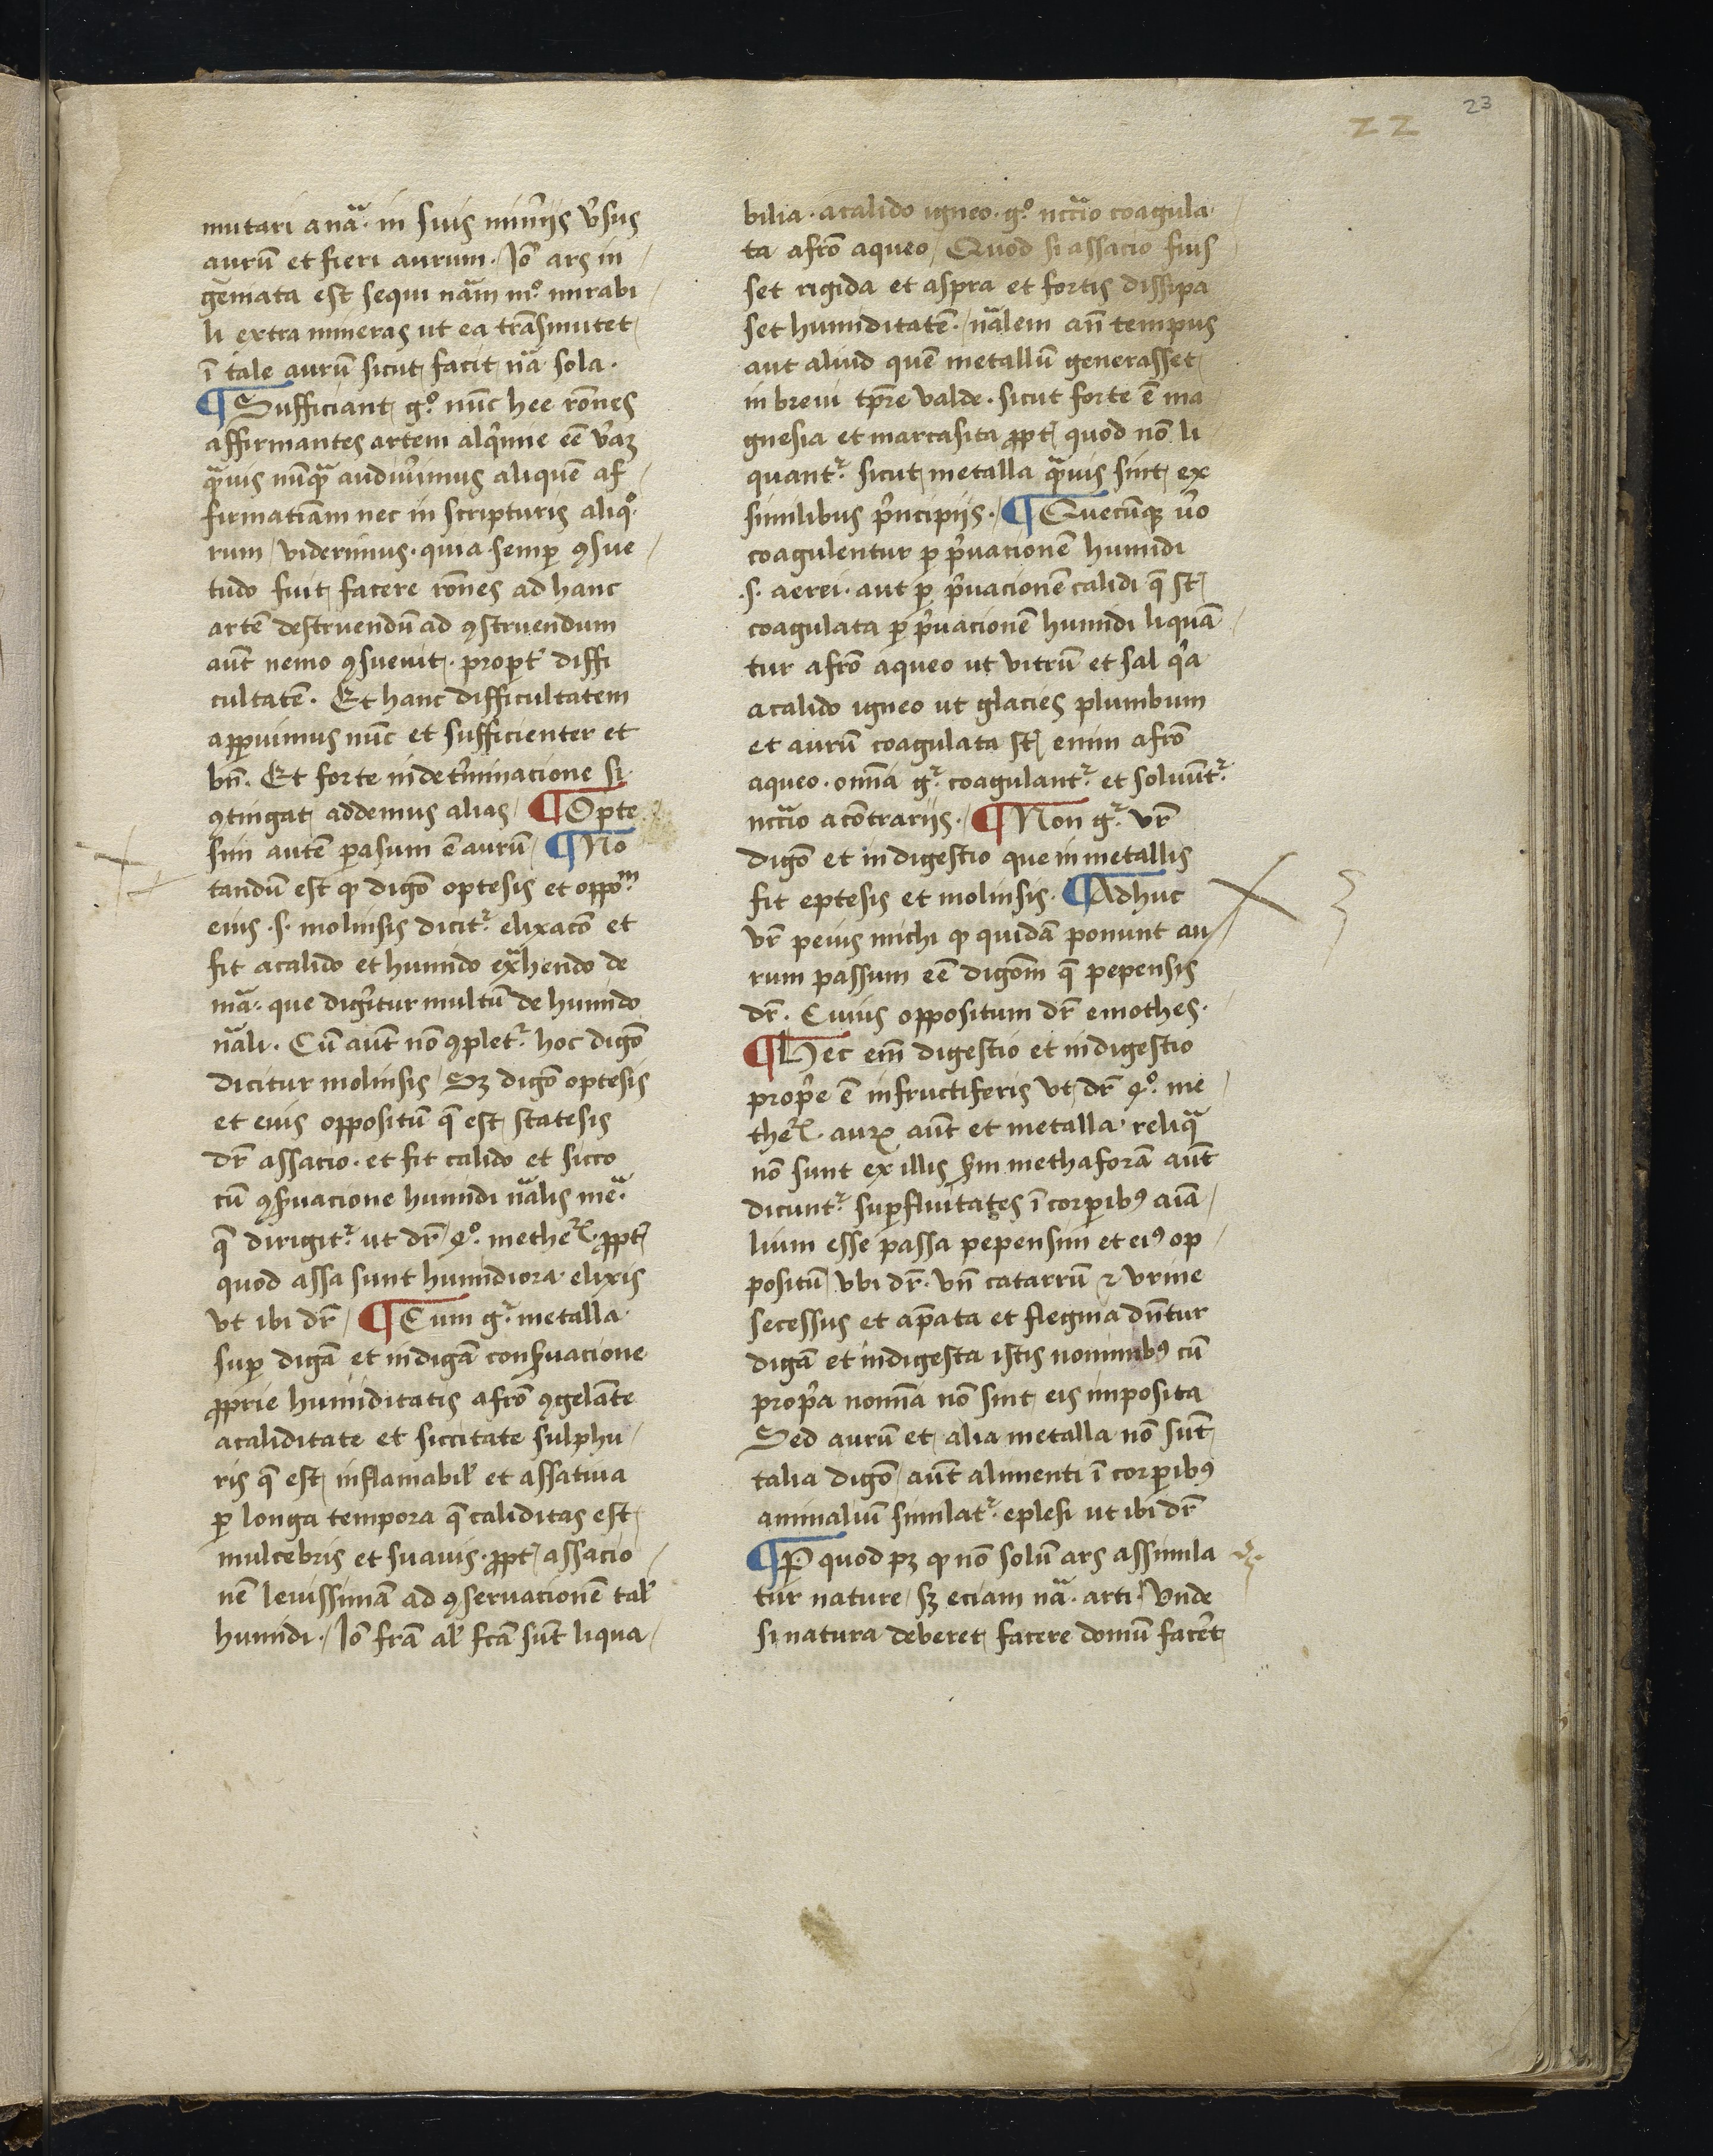 23
22
mutari a nā· in suis min̄ijs v̓sus
aurū et fieri aurum· Iō ars in
geniata est sequi nām mͦ· mirabi
li extra mineras ut ea trāsmutet
ī tale aurū sicut facit nā sola·
¶ Sufficiant gͦ· nūc hee rōnes
affirmantes artem alq̓mie eē v̓aꝫ
qᵃuis nūqᵃ audiu̓imus aliquē af
firmatiām nec in scripturis aliqͦ·
rum viderimus· quia semꝑ ꝯsue
tudo fuit facere rōnes ad hanc
artē destruendū ad ꝯstruendum
aūt nemo ꝯsueuit· propt̓ diffi
cultatē· Et hanc difficultatem
aꝑuimus nūc et sufficienter et
bn̄· Et forte in det̓minacione si
ꝯtingat addemus alias ¶ Opte
sim autē pasum ē aurū ¶ No
tandū est ꝙ digō optesis et oppoᵐ·
eius ·s· molinsis dicitʳ· elixacō et
fit a calido et humido exᵃhendo de
mā· que dig̓itur multū de humido
nāli· Cū aūt nō ꝯpletʳ· hoc digō
dicitur molinsis Sꝫ digō optesis
et eius oppositū q̄ est statesis
dr̄ assacio· et fit calido et sicco
cū ꝯẜuacione humidi nālis meᵃ·
q̄ dirigitʳ· ut dr̄ 4ͦ· metheꝝ· ꝓpt̓
quod assa sunt humidiora elixis
vt ibi dr̄ ¶ Cum gʳ· metalla
suꝑ digā et indigā conẜuacione
ꝓprie humiditatis a frō ꝯgelāte
a caliditate et siccitate sulphu
ris q̄ est inflamabil̓ et assatiua
ꝑ longa tempora q̄ caliditas est
mulcebris et suauis· ꝓpt̓ assacio
nē leuissimā ad ꝯseruacionē tal̓
humidi· Iō frā al̓ fcā sūt liqua
bilia· a calido igneo· gͦ· nccīo coagula
ta a frō aqueo Quod si assacio fuis
set rigida et aspra et fortis dissipa
set humiditatē· nālem an̄ tempus
aut aliud quē metallū generasset
in breui tp̄re valde· sicut forte ē ma
gnesia et marcasita ꝓpt̓ quod nō li
quantʳ· sicut metalla qᵃuis sint ex
similibus p̓ncipijs· ¶ Quecūqꝫ v̓o
coagulentur ꝑ p̓uacionē humidi
·s· aerei· aut ꝑ p̓uacionē calidi q̄ st̄
coagulata ꝑ p̓uacionē humidi liquā
tur a frō aqueo ut vitrū et sal q̓a
a calido igneo ut glacies plumbum
et aurū coagulata st̄ enim a frō
aqueo· omīa gʳ· coagulantʳ· et soluūtʳ·
nccīo a cōtrarijs· ¶ Non gʳ· vr̄
digō et indigestio que in metallis
fit eptesis et molinsis· ¶ Adhuc
vr̄ peius michi ꝙ quidā ponunt au
rum passum eē digōm q̄ pepensis
dr̄· Cuius oppositum dr̄ emothes·
¶ Hec em̄ digestio et indigestio
prop̓e ē in fructiferis vt dr̄ 4ͦ· me
theꝝ· auꝝ aūt et metalla reliqᵃ
nō sunt ex illis ẜm methaforā aūt
dicuntʳ· suꝑfluitates ī corꝑibꝰ aīa
lium esse passa pepensim et eiꝰ op
positū vbi dr̄· vn̄ catarrū ⁊ vrine
secessus et ap̄ata et flegma dn̄tur
digā et indigesta istis nominibꝰ cū
prop̓a nomīa nō sint eis imposita
Sed aurū et alia metalla nō sūt
talia digō aūt alimenti ī corꝑibꝰ
animaliū similatʳ· eplesi ut ibi dr̄
¶ P quod pꝫ ꝙ nō solū ars assimila
tur nature sꝫ eciam nā· arti Vnde
si natura deberet facere domū fac̓et